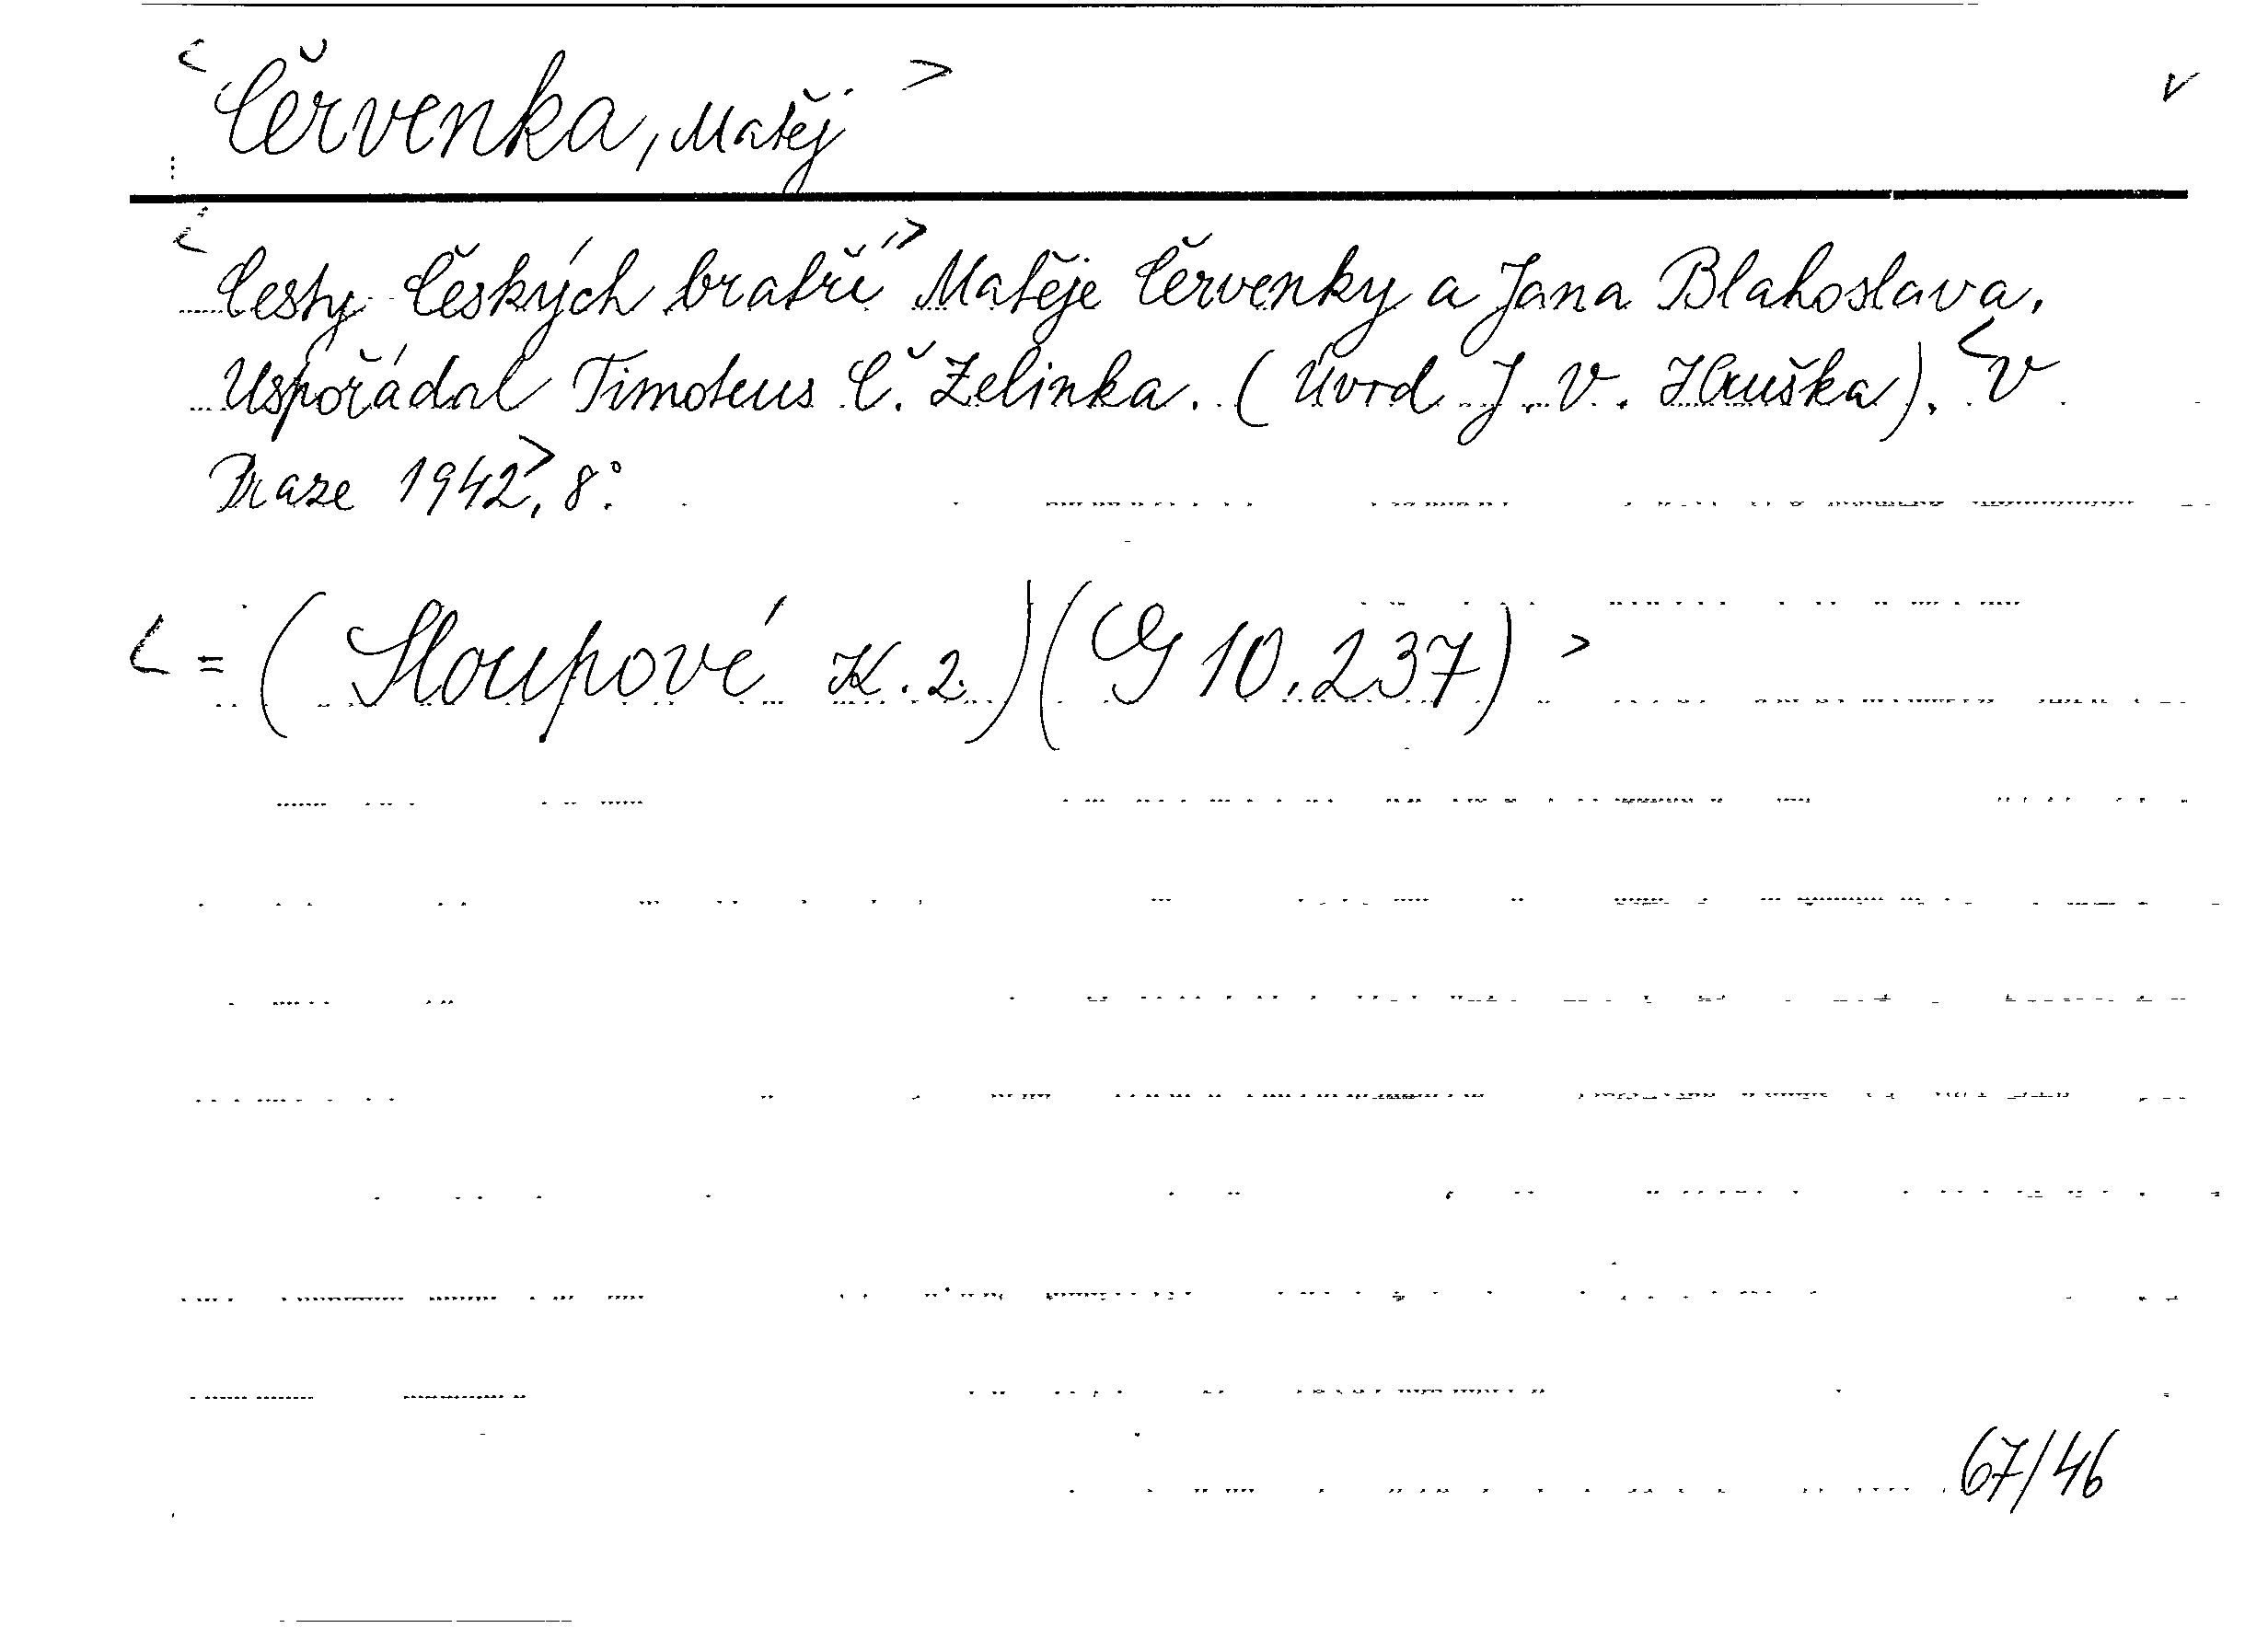 <Červenka, Matěj> v
<Cesty českých bratří> Matěje Červenky a Jana Blahoslava.
Uspořádal Timoteus Č. Zelinka. (Úvod J. V. Hruška). <V
Praze 1942>, 8°.
<= (Sloupové K. 2.) (G 10.237)>
67/46